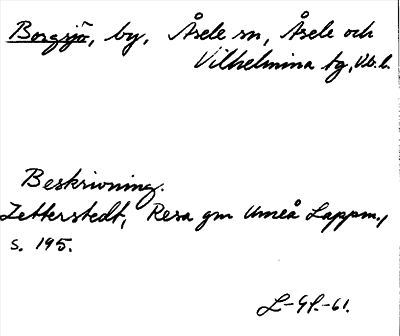 Borgsjö, by, Åsele sn, Åsele och
Vilhelmina tg, Vb. l.
Beskrivning.
Zetterstedt, Resa gm Umeå Lappm.,
s. 195.